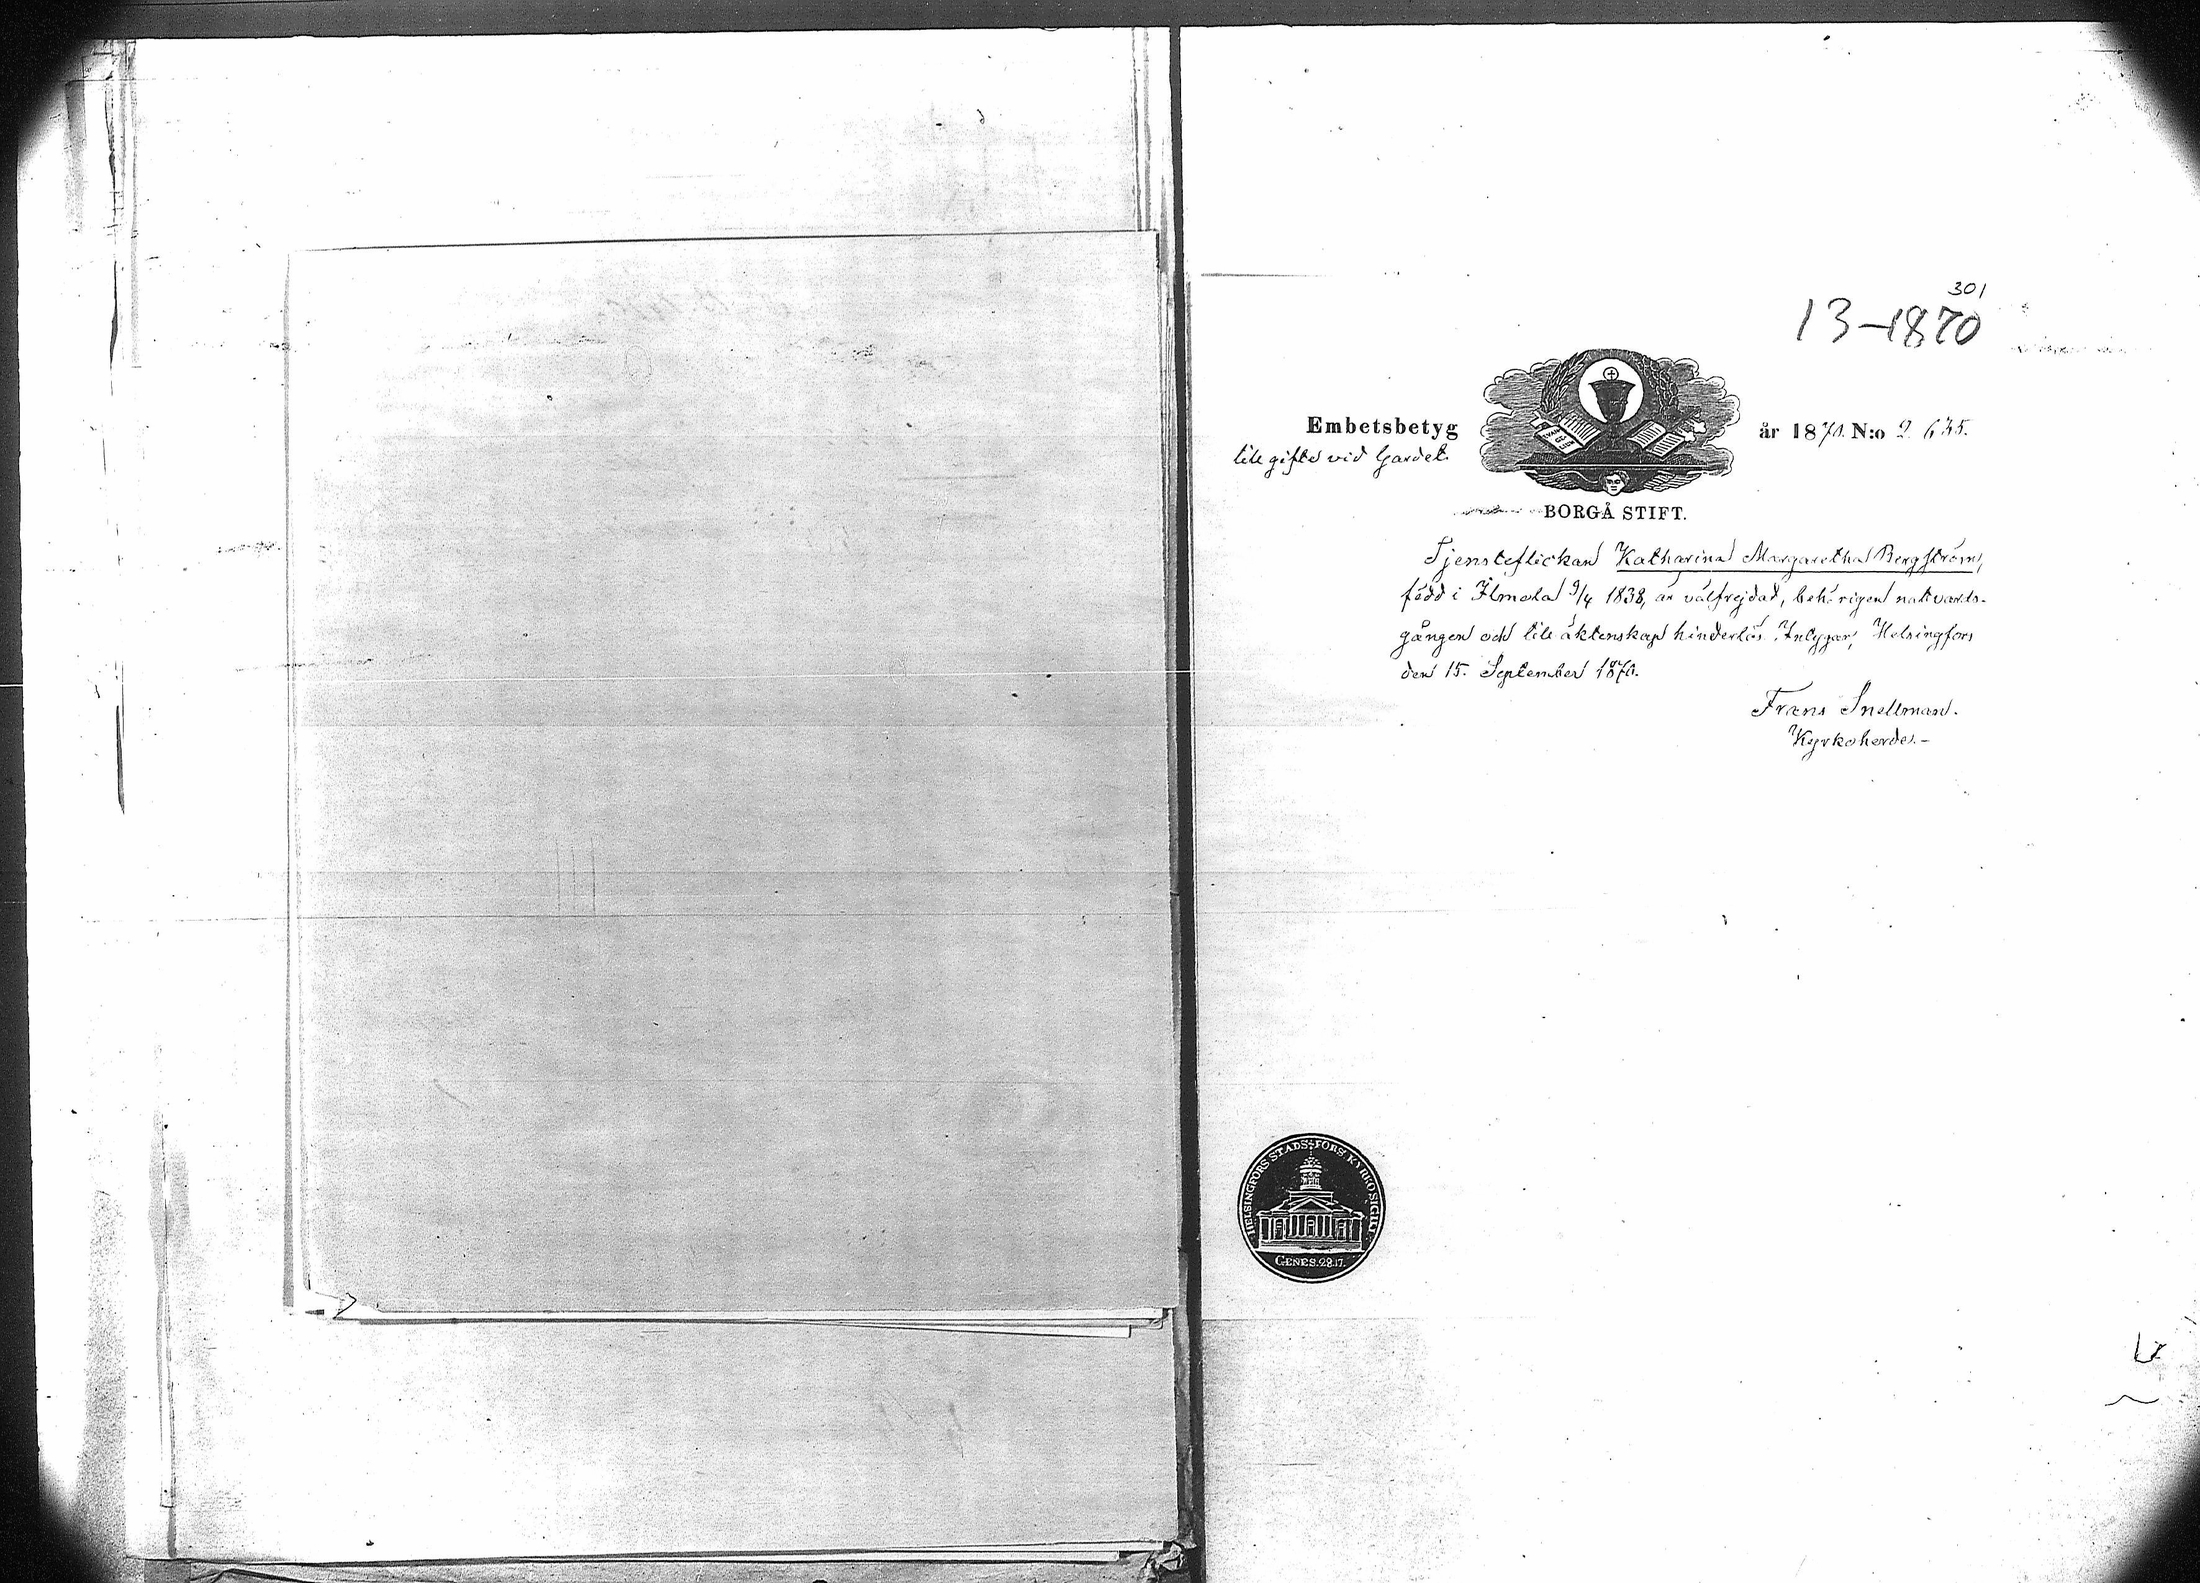 301
13-1870
Embetsbetyg år 1870. N:o 2635.
till gifte vid Gardet.
EVAN
GE
LIUM
BORGÅ STIFT.
Tjensteflickan Katharina Margaretha Bergström,
född i Ilmola 9/4 1838, är välfrejdad, behörigen nattvards-
gången och till äktenskap hinderlös. Intygar, Helsingfors
den 15. September 1870.
Frans Snellman.
Kyrkoherde.-
HELSINGFORS STADS FÖRS: KYRKO SIGILL
GENES. 28.17.